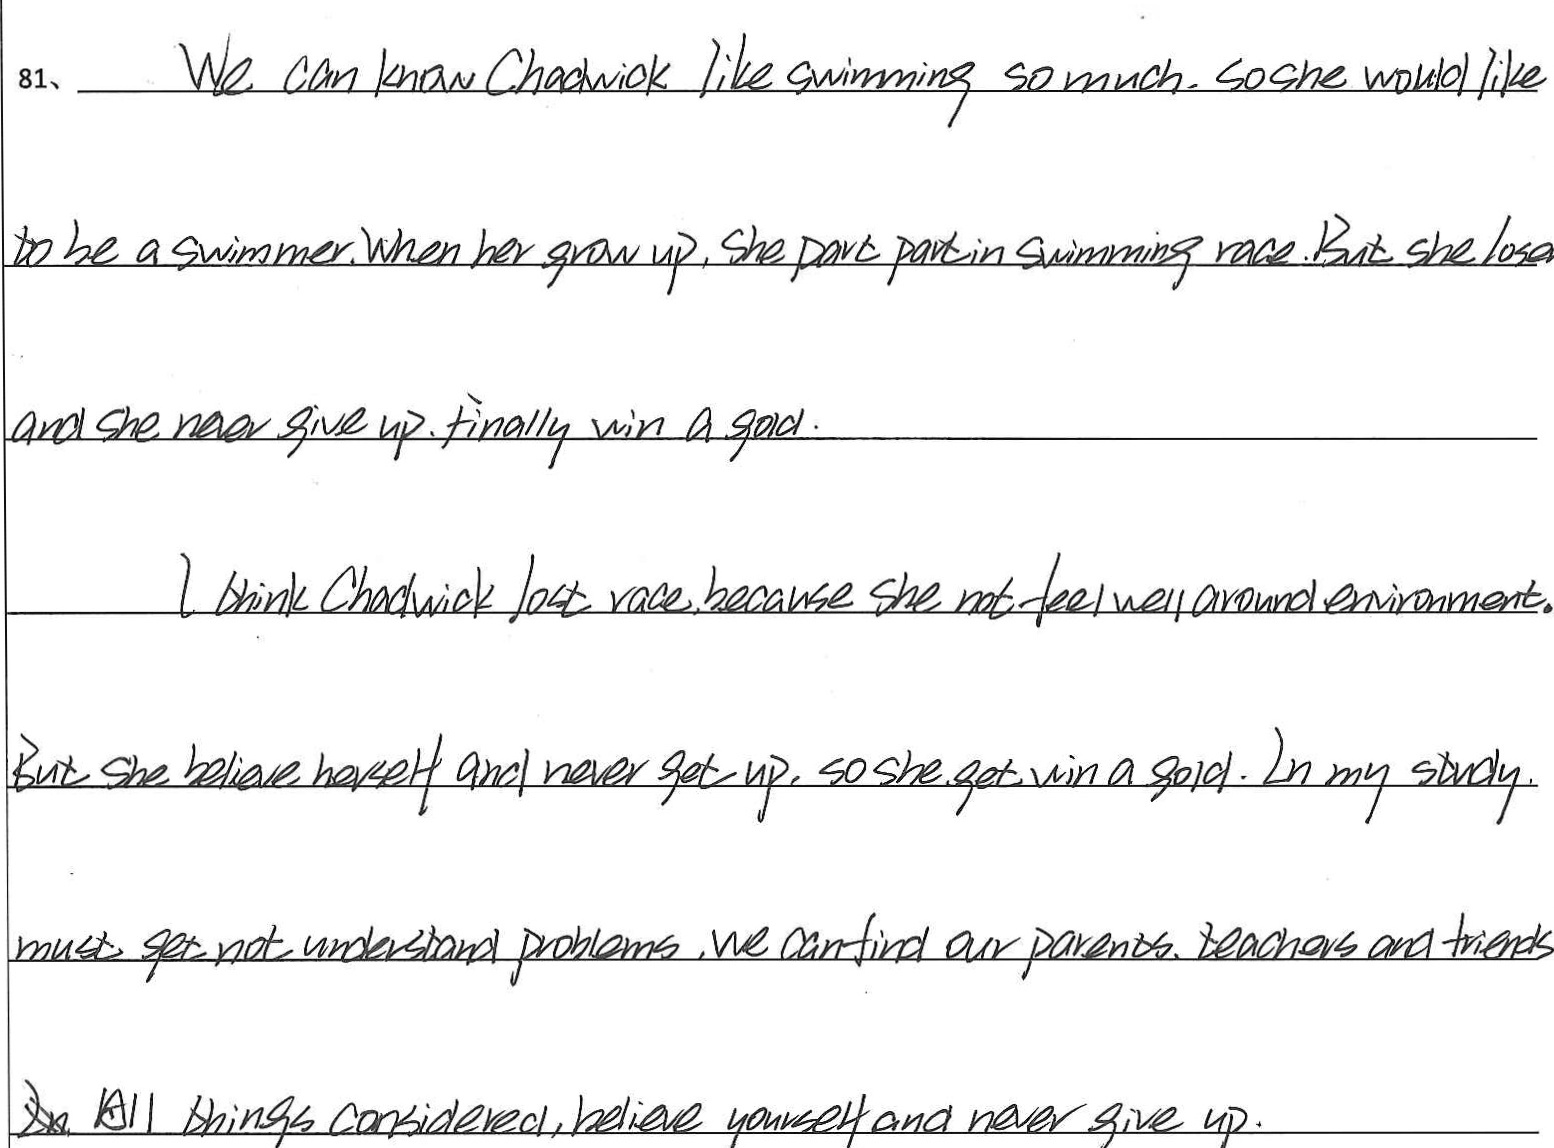 81、 We can know Chadwick like swimming so much. so she would like
to be a swimmer. When her grow up, she part part in swimming race. But she lose
and she never give up. Finally win a gold.
I think Chadwick lost race, because she not feel well around environment.
But she believe herself and never get up, so she get win a gold. In my study,
must get not understand problems, we can find our parents. teachers and friends
In All things considered, believe yourself and never give up.